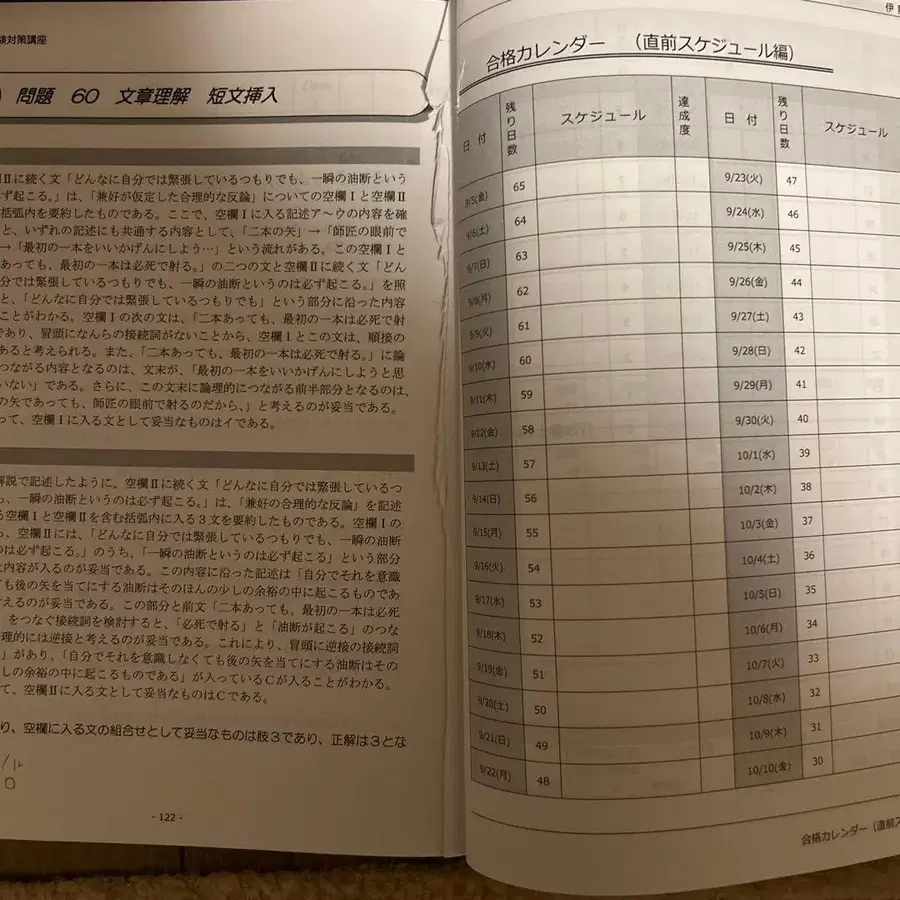 験対策講座
問題 60 文章理解 短文挿入
欄Ⅱに続く文「どんなに自分では緊張しているつもりでも、一瞬の油断という
ず起こる。」は、「兼好が仮定した合理的な反論」についての空欄Ⅰと空欄Ⅱ
括弧内を要約したものである。ここで、空欄Ⅰに入る記述ア～ウの内容を確
と、いずれの記述にも共通する内容として、「二本の矢」→「師匠の眼前で
→「最初の一本をいいかげんにしよう…」という流れがある。この空欄Ⅰと
あっても、最初の一本は必死で射る。」の二つの文と空欄Ⅱに続く文「どん
分では緊張しているつもりでも、一瞬の油断というのは必ず起こる。」を照
と、「どんなに自分では緊張しているつもりでも」という部分に沿った内容
ことがわかる。空欄Ⅰの次の文は、「二本あっても、最初の一本は必死で射
であり、冒頭になんらの接続詞がないことから、空欄Ⅰとこの文は、順接の
あると考えられる。また、「二本あっても、最初の一本は必死で射る。」に論
つながる内容となるのは、文末が、「最初の一本をいいかげんにしようと思
いない」である。さらに、この文末に論理的につながる前半部分となるのは、
の矢であっても、師匠の眼前で射るのだから、」と考えるのが妥当である。
って、空欄Ⅰに入る文として妥当なものはイである。
解説で記述したように、空欄Ⅱに続く文「どんなに自分では緊張しているつ
も、一瞬の油断というのは必ず起こる。」は、「兼好の合理的な反論」を記述
る空欄Ⅰと空欄Ⅱを含む括弧内に入る3文を要約したものである。空欄Ⅰの
ら、空欄Ⅱには、「どんなに自分では緊張しているつもりでも、一瞬の油断
のは必ず起こる。」のうち、「一瞬の油断というのは必ず起こる」という部分
た内容が入るのが妥当である。この内容に沿った記述は「自分でそれを意識
ても後の矢を当てにする油断はそのほんの少しの余裕の中に起こるものであ
考えるのが妥当である。この部分と前文「二本あっても、最初の一本は必死
」をつなぐ接続詞を検討すると、「必死で射る」と「油断が起こる」のつな
理的には逆接と考えるのが妥当である。これにより、冒頭に逆接の接続詞
」があり、「自分でそれを意識しなくても後の矢を当てにする油断はその
しの余裕の中に起こるものである」が入っているCが入ることがわかる。
て、空欄Ⅱに入る文として妥当なものはCである。
り、空欄に入る文の組合せとして妥当なものは肢3であり、正解は3とな
- 122 -
伊
合格カレンダー （直前スケジュール編）
日付 残り日数 スケジュール 達成度 日付 残り日数 スケジュール
9/5(金) 65 9/23(火) 47
9/6(土) 64 9/24(水) 46
9/7(日) 63 9/25(木) 45
9/8(月) 62 9/26(金) 44
9/9(火) 61 9/27(土) 43
9/10(水) 60 9/28(日) 42
9/11(木) 59 9/29(月) 41
9/12(金) 58 9/30(火) 40
9/13(土) 57 10/1(水) 39
9/14(日) 56 10/2(木) 38
9/15(月) 55 10/3(金) 37
9/16(火) 54 10/4(土) 36
9/17(水) 53 10/5(日) 35
9/18(木) 52 10/6(月) 34
9/19(金) 51 10/7(火) 33
9/20(土) 50 10/8(水) 32
9/21(日) 49 10/9(木) 31
9/22(月) 48 10/10(金) 30
合格カレンダー（直前ス